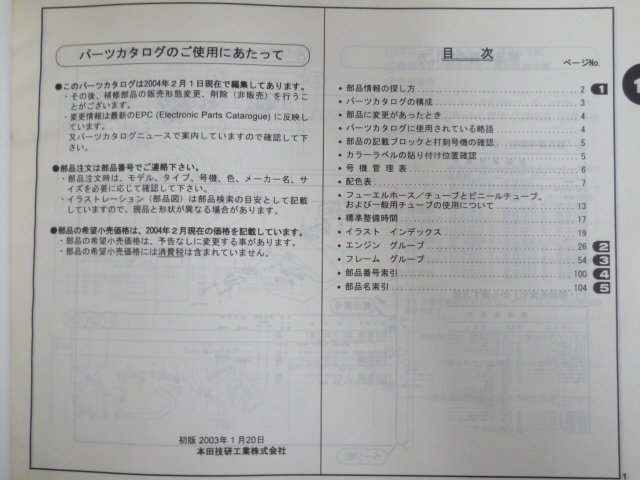 パーツカタログのご使用にあたって
●このパーツカタログは2004年2月1日現在で編集してあります。
・その後、補修部品の販売形態変更、削除（非販売）を行うこ
とがございます。
・変更情報は最新のEPC (Electronic Parts Catarogue) に反映し
ています。
又パーツカタログニュースで案内していますので確認して下
さい。
●部品注文は部品番号でご連絡下さい。
・部品注文時は、モデル、タイプ、号機、色、メーカー名、サ
イズを必要に応じて確認して下さい。
・イラストレーション（部品図）は部品検索の目安として記載
していますので、現品と形状が異なる場合があります。
●部品の希望小売価格は、2004年2月現在の価格を記載しています。
・部品の希望小売価格は、予告なしに変更する事があります。
・部品の希望小売価格には消費税は含まれていません。
初版 2003年1月20日
本田技研工業株式会社
目 次
ページNo.
・部品情報の探し方 2 1
・パーツカタログの構成 3
・部品に変更があったとき 4
・パーツカタログに使用されている略語 4
・部品の記載ブロックと打刻号機の確認 5
・カラーラベルの貼り付け位置確認 5
・号機管理表 6
・配色表 7
・フューエルホース／チューブとビニールチューブ、
および一般用チューブの使用について 13
・標準整備時間 17
・イラスト インデックス 19
・エンジン グループ 26 2
・フレーム グループ 54 3
・部品番号索引 100 4
・部品名索引 104 5
1
1